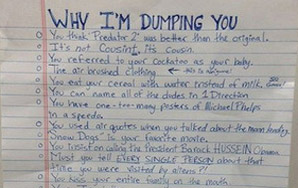 WHY I'M DUMPING YOU
You think "Predator 2" was better than the original.
It's not Cousint, it's Cousin.
You referred to your Cockatoo as your baby.
The air brushed clothing
You eat your cereal with water instead of milk.
You can name all of the dudes in 1 Direction
You have one-too-many posters of Michael Phelps
In a speedo.
You used air quotes when you talked about the moon landing
"Snow Dogs" is your favorite movie.
You insist on calling the president Barack HUSSEIN Obama
Must you tell EVERY SINGLE PERSON about that
time you were visited by aliens?!
You kiss your entire family on the mouth